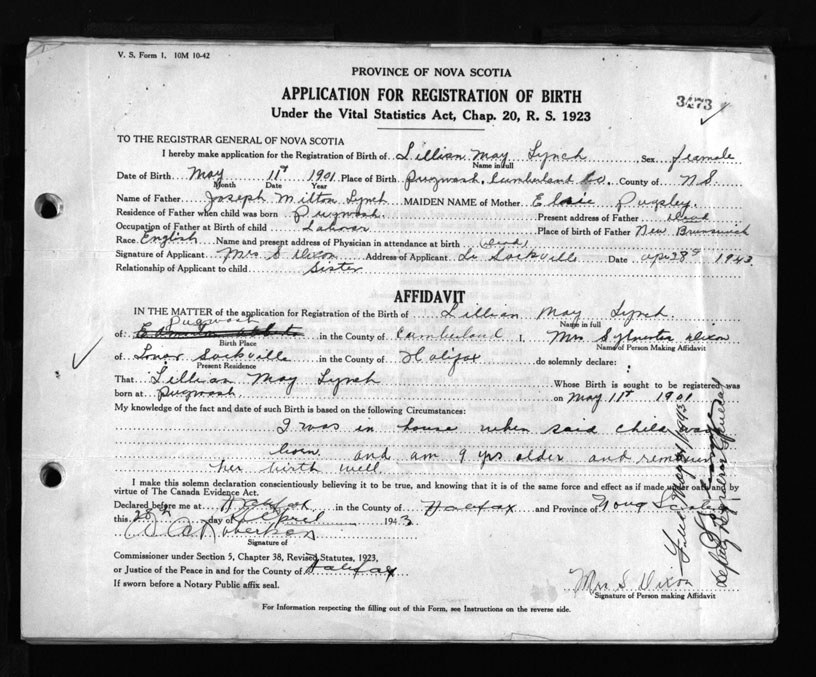 V. S. Form 1. 10M 10-42
PROVINCE OF NOVA SCOTIA
APPLICATION FOR REGISTRATION OF BIRTH
Under the Vital Statistics Act, Chap. 20, R. S. 1923
TO THE REGISTRAR GENERAL OF NOVA SCOTIA
I hereby make application for the Registration of Birth of Lillian May Lynch Sex female
Name in full
Date of Birth May 11th 1901 Place of Birth Pugwash, Cumberland Co. County of N S.
Month Date Year
Name of Father Joseph Milton Lynch MAIDEN NAME of Mother Elsie Pugsley.
Residence of Father when child was born Pugwash. Present address of Father Dead
Occupation of Father at Birth of child Labourer Place of birth of Father New Brunswick
Race English Name and present address of Physician in attendance at birth (dead)
Signature of Applicant Mrs S Dixon Address of Applicant Lr Sackville Date Apr 28th 1943.
Relationship of Applicant to child Sister
AFFIDAVIT
IN THE MATTER of the application for Registration of the Birth of Lillian May Lynch.
Name in full
Pugwash
of in the County of Cumberland I, Mrs Sylvester Dixon
Birth Place Name of Person Making Affidavit
of Lower Sackville in the County of Halifax do solemnly declare:
Present Residence
That Lillian May Lynch Whose Birth is sought to be registered was
born at Pugwash. on May 11th 1901
My knowledge of the fact and date of such Birth is based on the following Circumstances:
I was in house when said child was
born. and am 9 yrs older and remember
her birth well.
I make this solemn declaration conscientiously believing it to be true, and knowing that it is of the same force and effect as if made under oath and by
virtue of The Canada Evidence Act.
Declared before me at Halifax in the County of Halifax and Province of Nova Scotia
this 28th day of April 1943
Signature of
Commissioner under Section 5, Chapter 38, Revised Statutes, 1923,
or Justice of the Peace in and for the County of Halifax
If sworn before a Notary Public affix seal.
Mrs. S. Dixon
Signature of Person making Affidavit
For Information respecting the filling out of this Form, see Instructions on the reverse side.
Deputy Registrar General